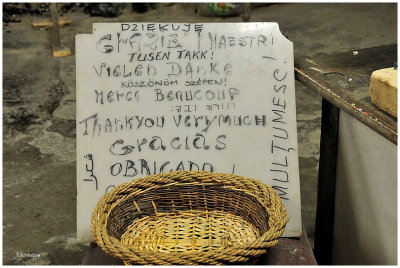 DZIEKUJĘ
GRAZIE! MAESTRI
TUSEN TAKK!
VieLEN DANKE
KÖSZÖNÖM SZÉPEN!
MERCI BEAUCOUP
תודה רבה
THANK YOU VERY MUCH
GRACIAS
OBRIGADO
MULŢUMESC!
Monique